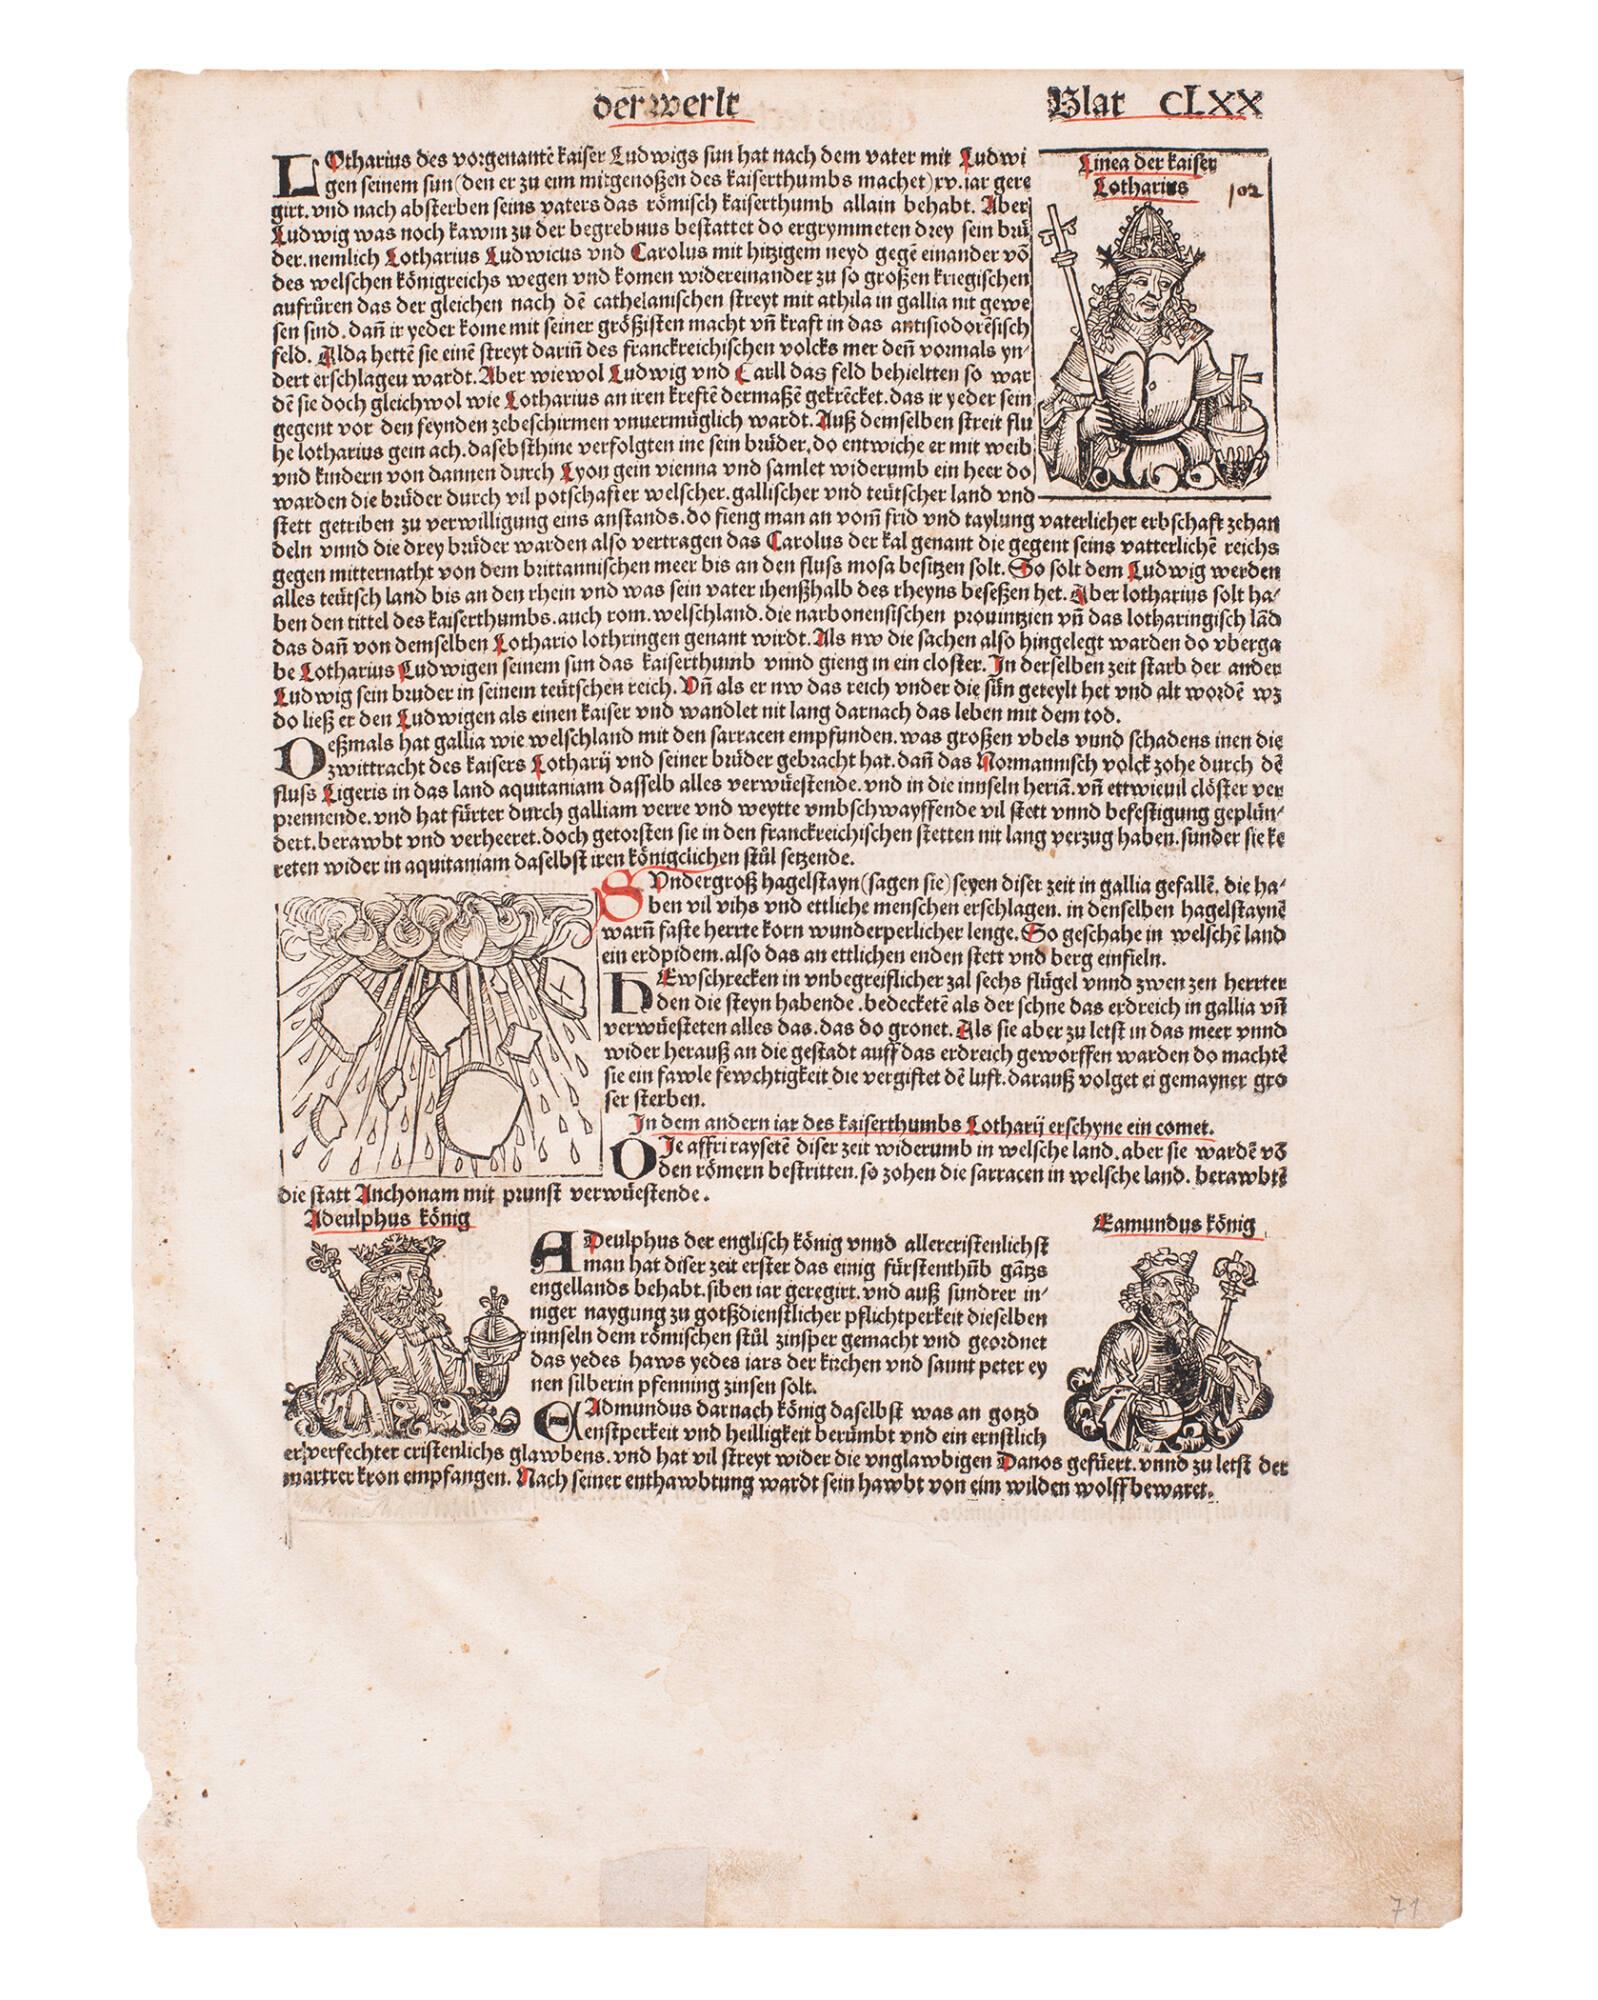 der werlt
Blat CLXX
Linea der kaiser
Lotharius
102
LOtharius des vorgenantē kaiser Ludwigs sun hat nach dem vater mit Ludwi
gen seinem sun (den er zu eim mitgenoßen des kaiserthumbs machet) xv. iar gere
girt. vnd nach absterben seins vaters das römisch kaiserthumb allain behabt. Aber
Ludwig was noch kawm zu der begrebnus bestattet do ergrymmeten drey sein brü
der. nemlich Lotharius Ludwicus vnd Carolus mit hitzigem neyd gegē einander vō
des welschen königreichs wegen vnd komen widereinander zu so großen kriegischen
aufrůren das der gleichen nach dē cathelanischen streyt mit athila in gallia nit gewe
sen sind. dañ ir yeder kome mit seiner größisten macht vñ kraft in das antisiodorēsisch
feld. Alda hettē sie einē streyt dariñ des franckreichischen volcks mer deñ vormals yn-
dert erschlagen wardt. Aber wiewol Ludwig vnd Carll das feld behieltten so war
dē sie doch gleichwol wie Lotharius an iren kreftē dermaßē gekrēcket. das ir yeder sein
gegent vor den feynden zebeschirmen vnuermüglich wardt. Auß demselben streit flu
he lotharius gein ach. dasebsthine verfolgten ine sein brüder. do entwiche er mit weib
vnd kindern von dannen durch Lyon gein vienna vnd samlet widerumb ein heer do
warden die brüder durch vil potschafter welscher. gallischer vnd teütscher land vnd
stett getriben zu verwilligung eins anstands. do fieng man an vom̃ frid vnd taylung vaterlicher erbschaft zehan
deln vnnd die drey brüder warden also vertragen das Carolus der kal genant die gegent seins vatterlichē reichs
gegen mitternatht von dem brittannischen meer bis an den fluss mosa besitzen solt. So solt dem Ludwig werden
alles teütsch land bis an den rhein vnd was sein vater ihenßhalb des rheyns beseßen het. Aber lotharius solt ha-
ben den tittel des kaiserthumbs. auch rom. welschland. die narbonensischen prouintzien vñ das lotharingisch lād
das dañ von demselben Lothario lothringen genant wirdt. Als nw die sachen also hingelegt warden do vberga
be Lotharius Ludwigen seinem sun das kaiserthumb vnnd gieng in ein closter. In derselben zeit starb der ander
Ludwig sein bruder in seinem teütschen reich. Vñ als er nw das reich vnder die sün geteylt het vnd alt wordē wz
do ließ er den Ludwigen als einen kaiser vnd wandlet nit lang darnach das leben mit dem tod.
DEßmals hat gallia wie welschland mit den sarracen empfunden. was großen vbels vnnd schadens inen die
zwittracht des kaisers Lotharij vnd seiner brüder gebracht hat. dañ das Normannisch volck zohe durch dē
fluss Ligeris in das land aquitaniam dasselb alles verwüestende. vnd in die innseln heriā. vñ ettwieuil clöster ver
prennende. vnd hat fürter durch galliam verre vnd weytte vmbschwayffende vil stett vnnd befestigung geplün-
dert. berawbt vnd verheeret. doch getorsten sie in den franckreichischen stetten nit lang verzug haben. sunder sie ke
reten wider in aquitaniam daselbst iren königclichen stůl setzende.
SVndergroß hagelstayn (sagen sie) seyen diser zeit in gallia gefallē. die ha-
ben vil vihs vnd ettliche menschen erschlagen. in denselben hagelstaynē
warñ faste herrte korn wunderperlicher lenge. So geschahe in welschē land
ein erdpidem. also das an ettlichen enden stett vnd berg einfieln.
HEwschrecken in vnbegreiflicher zal sechs flügel vnnd zwen zen herrter
den die steyn habende. bedecketē als der schne das erdreich in gallia vñ
verwüesteten alles das. das do gronet. Als sie aber zu letst in das meer vnnd
wider herauß an die gestadt auff das erdreich geworffen warden do machtē
sie ein fawle fewchtigkeit die vergiftet dē luft. darauß volget ei gemayner gro
ser sterben.
In dem andern iar des kaiserthumbs Lotharij erschyne ein comet.
DIe affri raysetē diser zeit widerumb in welsche land. aber sie wardē vō
den römern bestritten. so zohen die sarracen in welsche land. berawbtē
die statt Anchonam mit prunst verwüestende.
Adeulphus könig
ADeulphus der englisch könig vnnd allercristenlichst
man hat diser zeit erster das einig fürstenthūb gātzs
engellands behabt. siben iar geregirt. vnd auß sundrer in-
niger naygung zu gotßdienstlicher pflichtperkeit dieselben
innseln dem römischen stůl zinsper gemacht vnd geordnet
das yedes haws yedes iars der kirchen vnd sannt peter ey
nen silberin pfenning zinsen solt.
Eamundus könig
EAdmundus darnach könig daselbst was an gotzd
ienstperkeit vnd heilligkeit berümbt vnd ein ernstlich
er verfechter cristenlichs glawbens. vnd hat vil streyt wider die vnglawbigen Danos gefüert. vnnd zu letst der
martrer kron empfangen. Nach seiner enthawbtung wardt sein hawbt von eim wilden wolff bewaret.
71